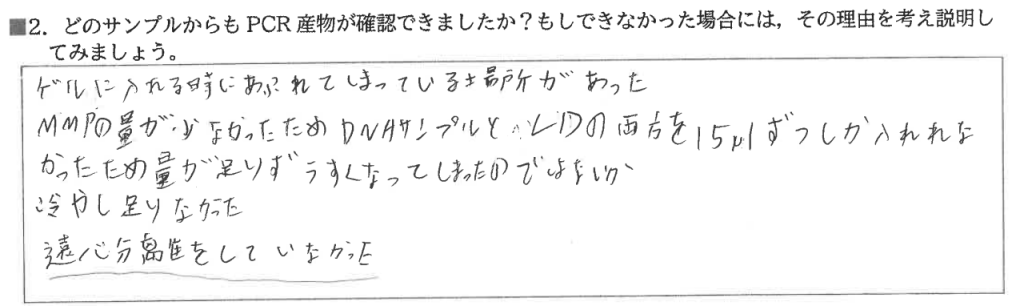 ■2. どのサンプルからも PCR 産物が確認できましたか？もしできなかった場合には，その理由を考え説明し
てみましょう。
ゲルに入れる時にあふれてしまっている場所があった
MMPの量が少なかったためDNAサンプルと LDの両方を15μlずつしか入れれな
かったため量が足りずうすくなってしまったのではないか
冷やし足りなかった
遠心分離をしていなかった